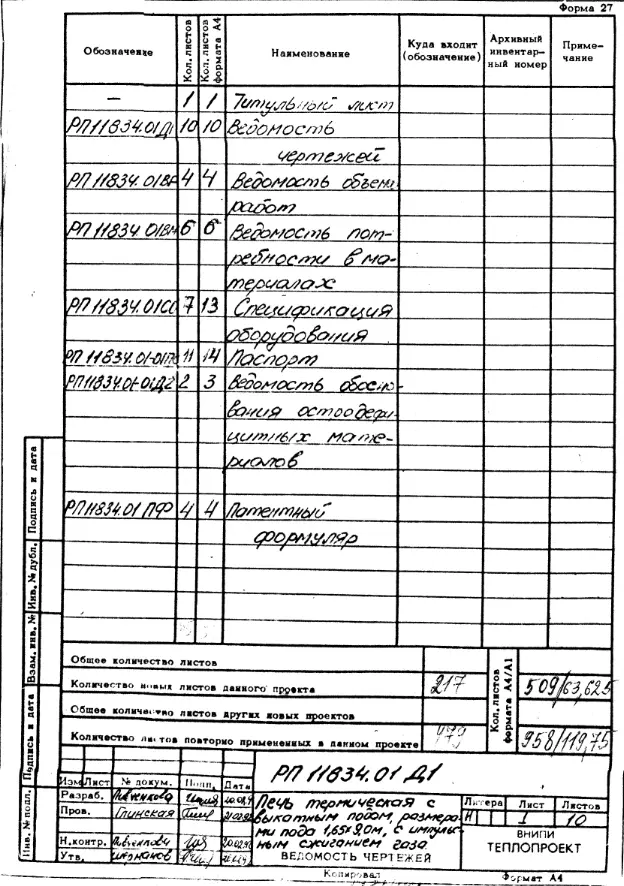 Форма 27
Обозначение Кол. листов Кол. листов формата А4 Наименование Куда входит (обозначение) Архивный инвентар-ный номер Приме-чание
— 1 1 Титульный лист
РП 11834.01Д1 10 10 Ведомость
чертежей
РП 11834.01ВР 4 4 Ведомость объем.
работ
РП 11834.01ВМ 6 6 Ведомость пот-
ребности в ма-
териалах
РП 11834.01СО 7 13 Спецификация
оборудования
РП 11834.01-01ПС 11 14 Паспорт
РП11834.01-01Д2 2 3 Ведомость обосно-
вания остродефи-
цитных мате-
риалов
РП11834.01 ПФ 4 4 Патентный
формуляр
Общее количество листов
Количество новых листов данного проекта 217
Общее количество листов других новых проектов
Количество листов повторно примененных в данном проекте
Кол. листов формата А4/А1
509/63,625
958/119,75
Подпись и дата
Инв. № дубл.
Взам. инв. №
Подпись и дата
Инв. № подл.
РП 11834.01 Д1
Изм Лист № докум. Подп. Дата
Разраб.
Пров. Глинская
Н.контр.
Утв.
Печь термическая с
выкатным подом, размера-
ми пода 1,65х9,0м, с импульс-
ным сжиганием газа.
ВЕДОМОСТЬ ЧЕРТЕЖЕЙ
Литера Лист Листов
И 1 10
ВНИПИ
ТЕПЛОПРОЕКТ
Копировал Формат А4